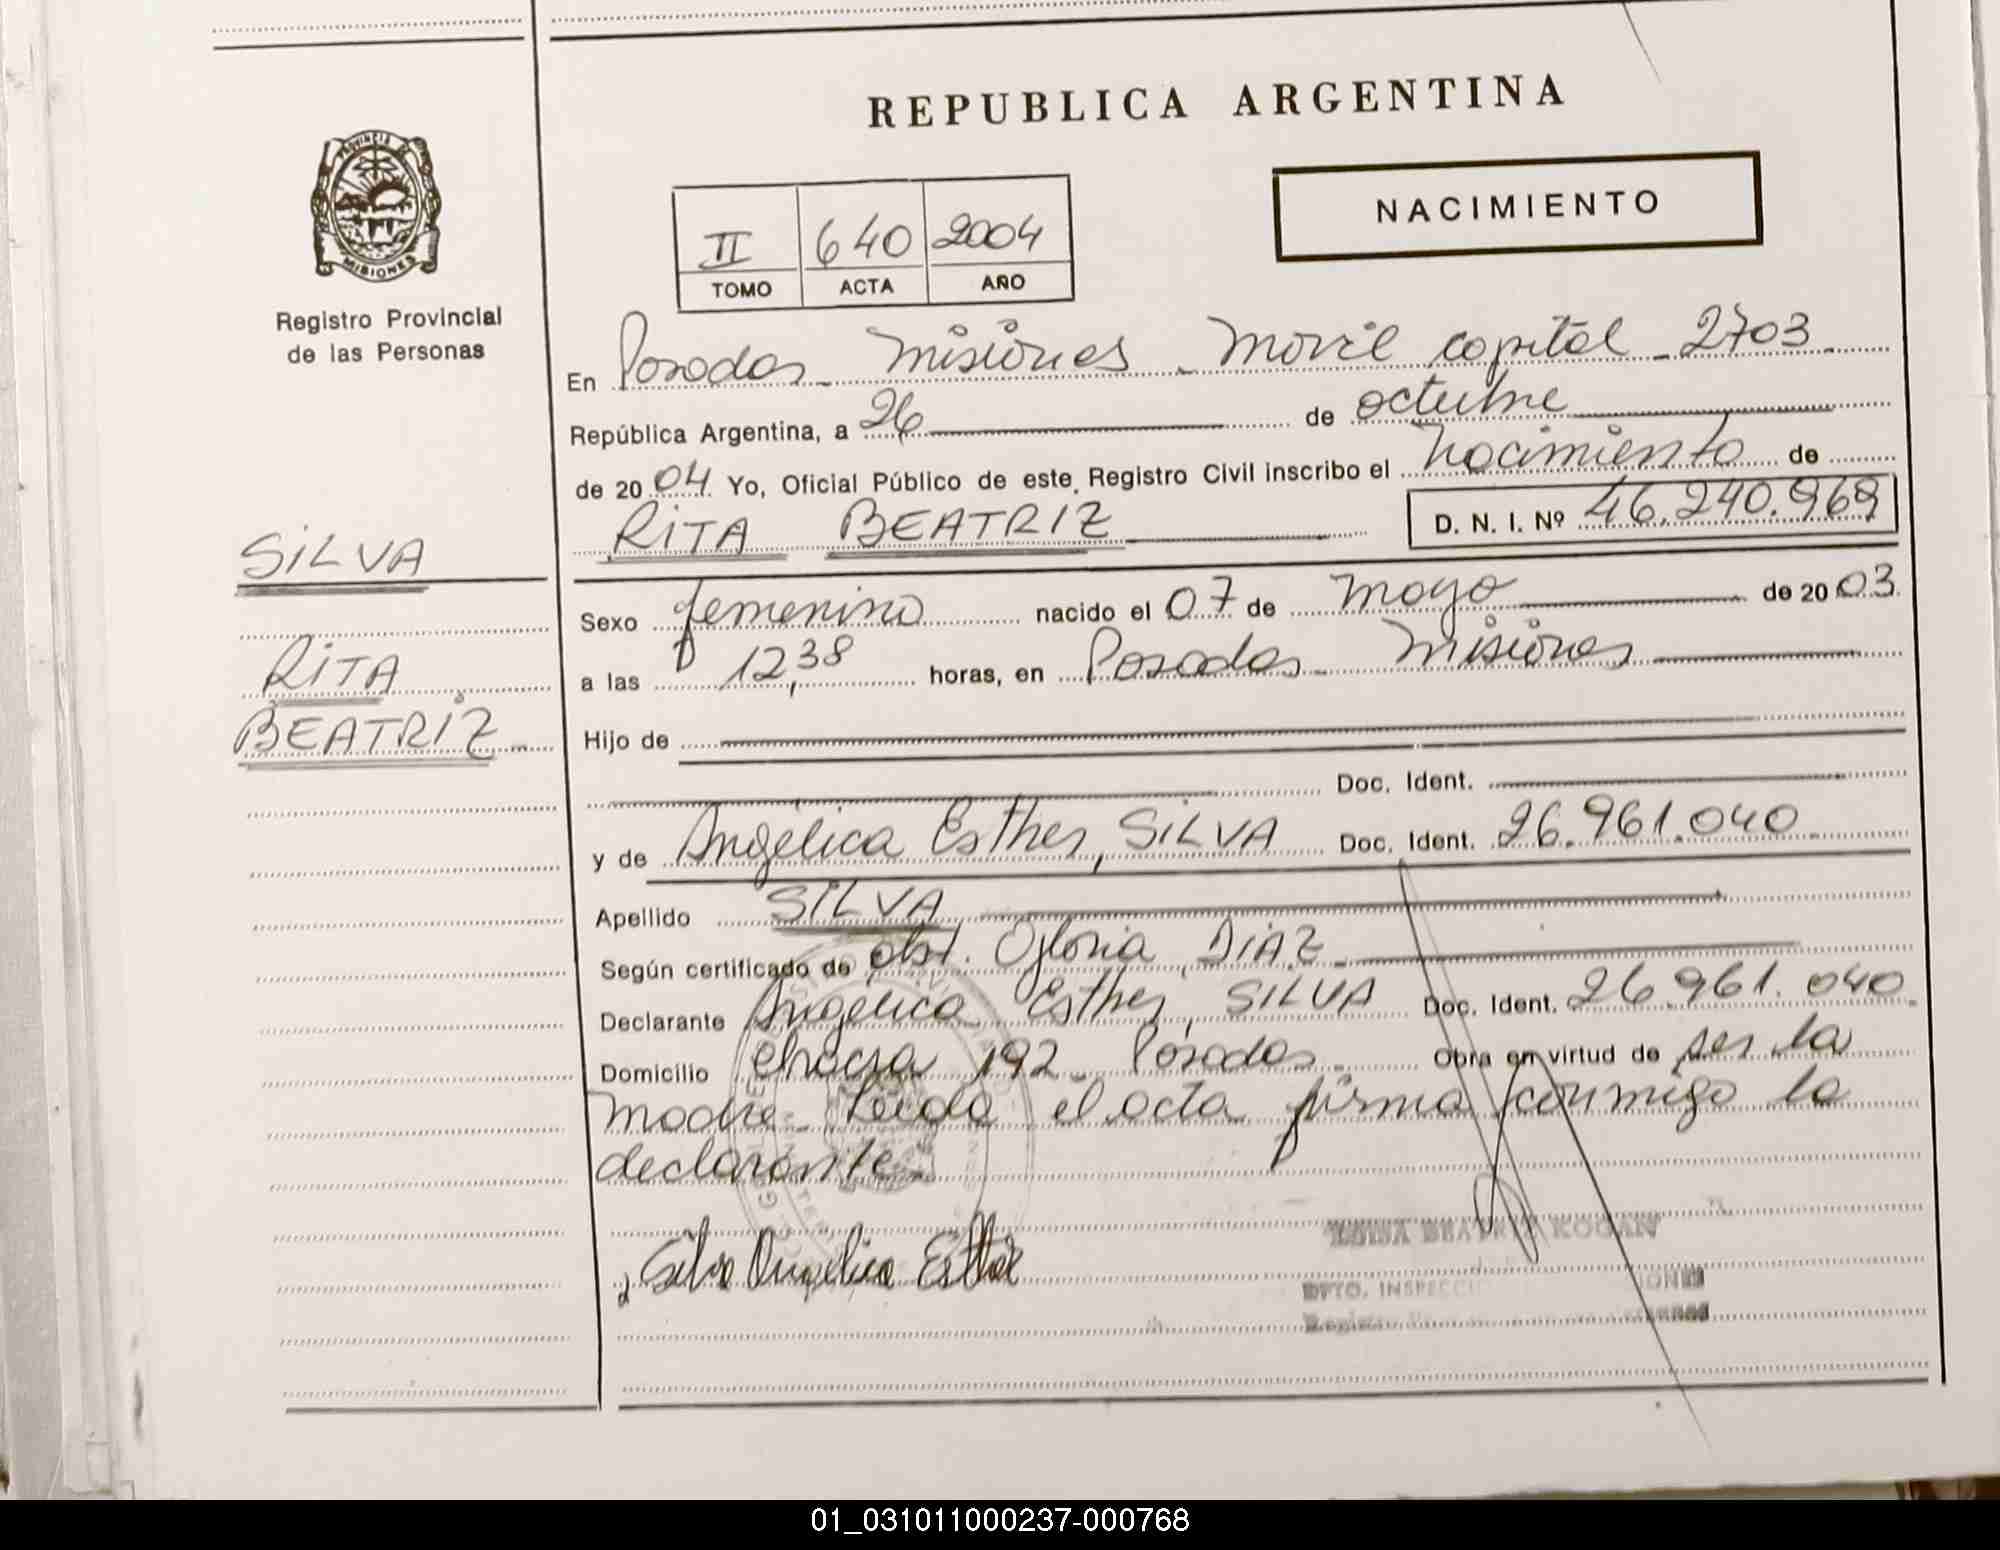 REPUBLICA ARGENTINA
PROVINCIA DE
MISIONES
Registro Provincial
de las Personas
NACIMIENTO
II 640 2004
TOMO ACTA AÑO
En Posadas - Misiones - Movil capital - 2703 -
República Argentina, a 26 de octubre
de 2004 Yo, Oficial Público de este Registro Civil inscribo el Nacimiento de
RITA BEATRIZ D. N. I. Nº 46.240.969
SILVA
RITA
BEATRIZ
Sexo femenino nacido el 07 de Mayo de 2003
a las 12,38 horas, en Posadas - Misiones
Hijo de
Doc. Ident.
y de Angélica Esther, SILVA Doc. Ident. 26.961.040
Apellido SILVA
Según certificado de obst. Gloria DIAZ
Declarante Angélica Esther, SILVA Doc. Ident. 26.961.040
Domicilio Chacra 192 - Posadas - Obra en virtud de ser la
madre - Leida el acta firma conmigo la
declarante -
Silva Angelica Esther
BEATRIZ KOGAN
DPTO. INSPECCI
01_031011000237-000768